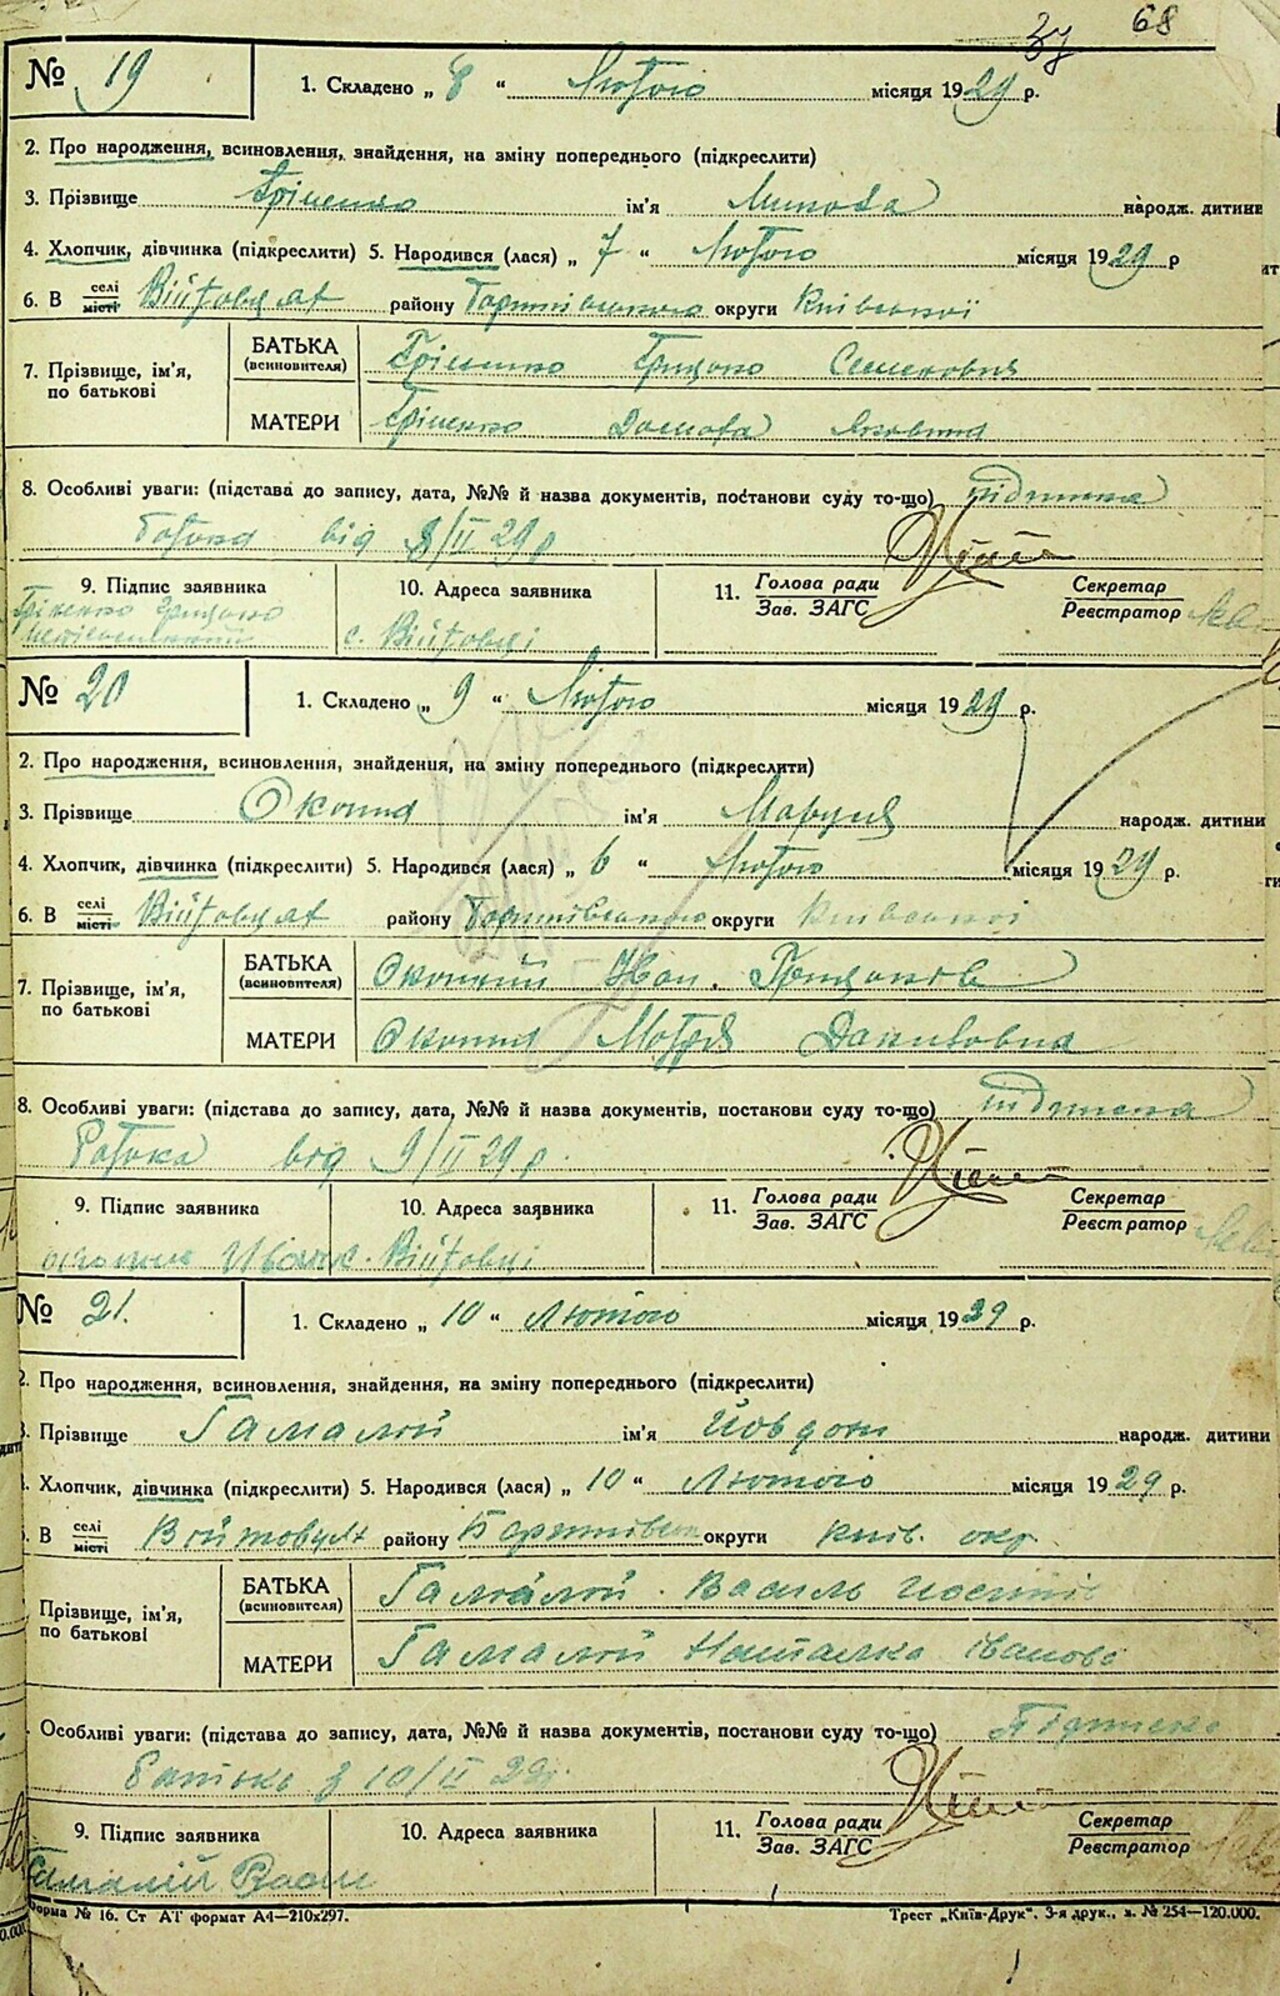 37 68
№ 19 1. Складено „ 8 “ Лютого місяця 1929 р.
2. Про народження, всиновлення, знайдення, на зміну попереднього (підкреслити)
3. Прізвище Гріценко ім'я Микола народж. дитини
4. Хлопчик, дівчинка (підкреслити) 5. Народився (лася) „ 7 “ Лютого місяця 1929 р
6. В селі місті Війтовцях району Баришівського округи Київської
7. Прізвище, ім'я, по батькові
БАТЬКА (всиновителя) Гріценко Грицько Семенович
МАТЕРИ Гріценко Домаха Яковина
8. Особливі уваги: (підстава до запису, дата, №№ й назва документів, постанови суду то-що) підписка
батька від 8/II 29 р
9. Підпис заявника 10. Адреса заявника 11. Голова ради Зав. ЗАГС Секретар Реєстратор
Гріценко Грицько
с. Війтовці
№ 20 1. Складено „ 9 “ Лютого місяця 1929 р.
2. Про народження, всиновлення, знайдення, на зміну попереднього (підкреслити)
3. Прізвище Окопна ім'я Маруся народж. дитини
4. Хлопчик, дівчинка (підкреслити) 5. Народився (лася) „ 6 “ Лютого місяця 1929 р.
6. В селі місті Війтовцях району Баришівського округи Київської
7. Прізвище, ім'я, по батькові
БАТЬКА (всиновителя) Окопний Іван Грицьків
МАТЕРИ Окопна Мотря Данилівна
8. Особливі уваги: (підстава до запису, дата, №№ й назва документів, постанови суду то-що) підписка
батька від 9/II 29 р.
9. Підпис заявника 10. Адреса заявника 11. Голова ради Зав. ЗАГС Секретар Реєстратор
Іван с. Війтовці
№ 21. 1. Складено „ 10 “ Лютого місяця 1929 р.
2. Про народження, всиновлення, знайдення, на зміну попереднього (підкреслити)
3. Прізвище Гамалій ім'я Йовдоки народж. дитини
4. Хлопчик, дівчинка (підкреслити) 5. Народився (лася) „ 10 “ Лютого місяця 1929 р.
6. В селі місті Війтовцях району Баришівськ округи київ. окр.
Прізвище, ім'я, по батькові
БАТЬКА (всиновителя) Гамалій Василь Йосипів
МАТЕРИ Гамалій Наталка Іванова
Особливі уваги: (підстава до запису, дата, №№ й назва документів, постанови суду то-що) Підписка
батька з 10/II 29р.
9. Підпис заявника 10. Адреса заявника 11. Голова ради Зав. ЗАГС Секретар Реєстратор
Гамалій
Форма № 16. Ст АТ формат А4—210х297. Трест „Київ-Друк“. 3-я друк., з. № 254—120.000.